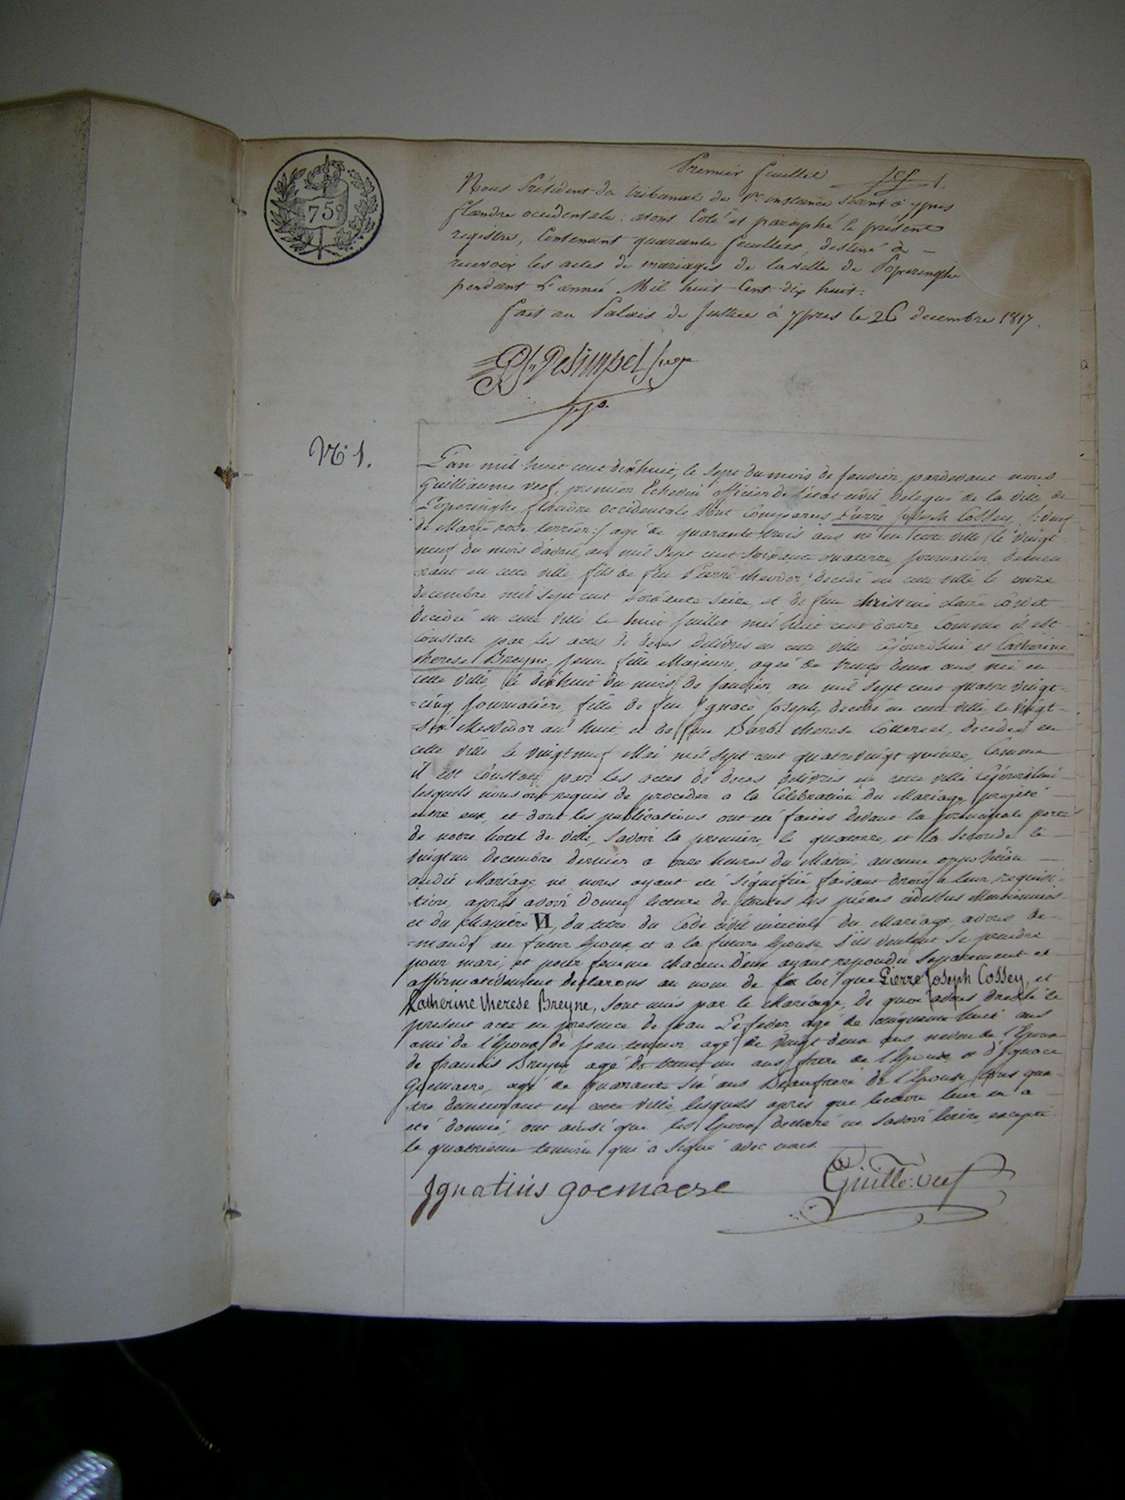 75
Premier feuillet
Nous Président du tribunal de 1re instance séant à ypres
flandre occidentale: avons Coté et paraphé le présent
registre, Contenant quarante feuillets, destiné à
recevoir les actes de mariages de la ville de Poperinghe
pendant l'année Mil huit Cent dix huit:
fait au Palais de Justice à ypres le 26 decembre 1817.
No 1.
L'an mil huit cent dixhuit, le sept du mois de Janvier, pardevant nous
Guilliaume veef, premier Echevin officier de l'état civil delegué de la ville de
Poperinghe flandre occidentale Sont Comparus Pierre Joseph Cossey, /:veuf
de Marie rose terrier:/ agé de quarante trois ans né en cette ville le vingt
neuf du mois d'avril, an mil sept cent soixante quatorze, journalier, demeu
rant en cette ville, fils de feu Pierre decédé en cette ville le onze
decembre mil sept cent soixante seize, et de feue christine claire
decédée en cette ville le huit juillet mil huit cent douze, Comme il est
constaté par les actes de deces delivrés en cette ville et Catherine
therese Breyne, jeune fille Majeure, agée de trente deux ans née en
cette ville le dixhuit du mois de Janvier an mil sept cent quatre vingt-
cinq journalière, fille de feu Ignace Joseph, decédé en cette ville le vingt-
six Messidor an huit et de feue Barbe therese decedée en
cette ville le vingtneuf Mai mil sept cent quatrevingt quinze, Comme
il est Constaté par les actes de deces delivrés en cette ville
lesquels nous ont requis de proceder a la Célébration du Mariage projeté
entre eux, et dont les publications ont été faites devant la principale porte
de notre hotel de ville, Savoir la première, le quatorze, et la seconde le
vingtun decembre dernier a onze heures du Matin, aucune opposition
audit Mariage ne nous ayant été signifiée faisant droit a leur requisi-
tion, après avoir donné lecture de toutes les pièces cidessus Mentionnées
et du chapitre VI, du titre du Code civil intitulé du Mariage, avons de-
mandé au futur Epoux, et a la future Epouse s'ils veulent se prendre
pour mari, et pour femme chacun d'eux ayant repondu separement et
affirmativement declarons au nom de la loi que Pierre Joseph Cossey, et
Catherine therese Breyne, sont unis par le Mariage, de quoi avons dressé le
present acte en presence de jean agé de cinquante huit ans
ami de l'Epoux de jean agé de vingt deux ans neveu de l'Epoux
de francois Breyne agé de trente un ans frere de l'Epouse et d'Ignace
Goemaere, agé de quarante six ans Beaufrere de l'Epouse tous qua-
tre demeurant en cette ville, lesquels après que lecture leur en a
été donnée, ont ainsi que les Epoux declaré ne savoir écrire, excepté
le quatrieme temoin qui a signé avec nous.
Ignatius goemaere
Guille: veef